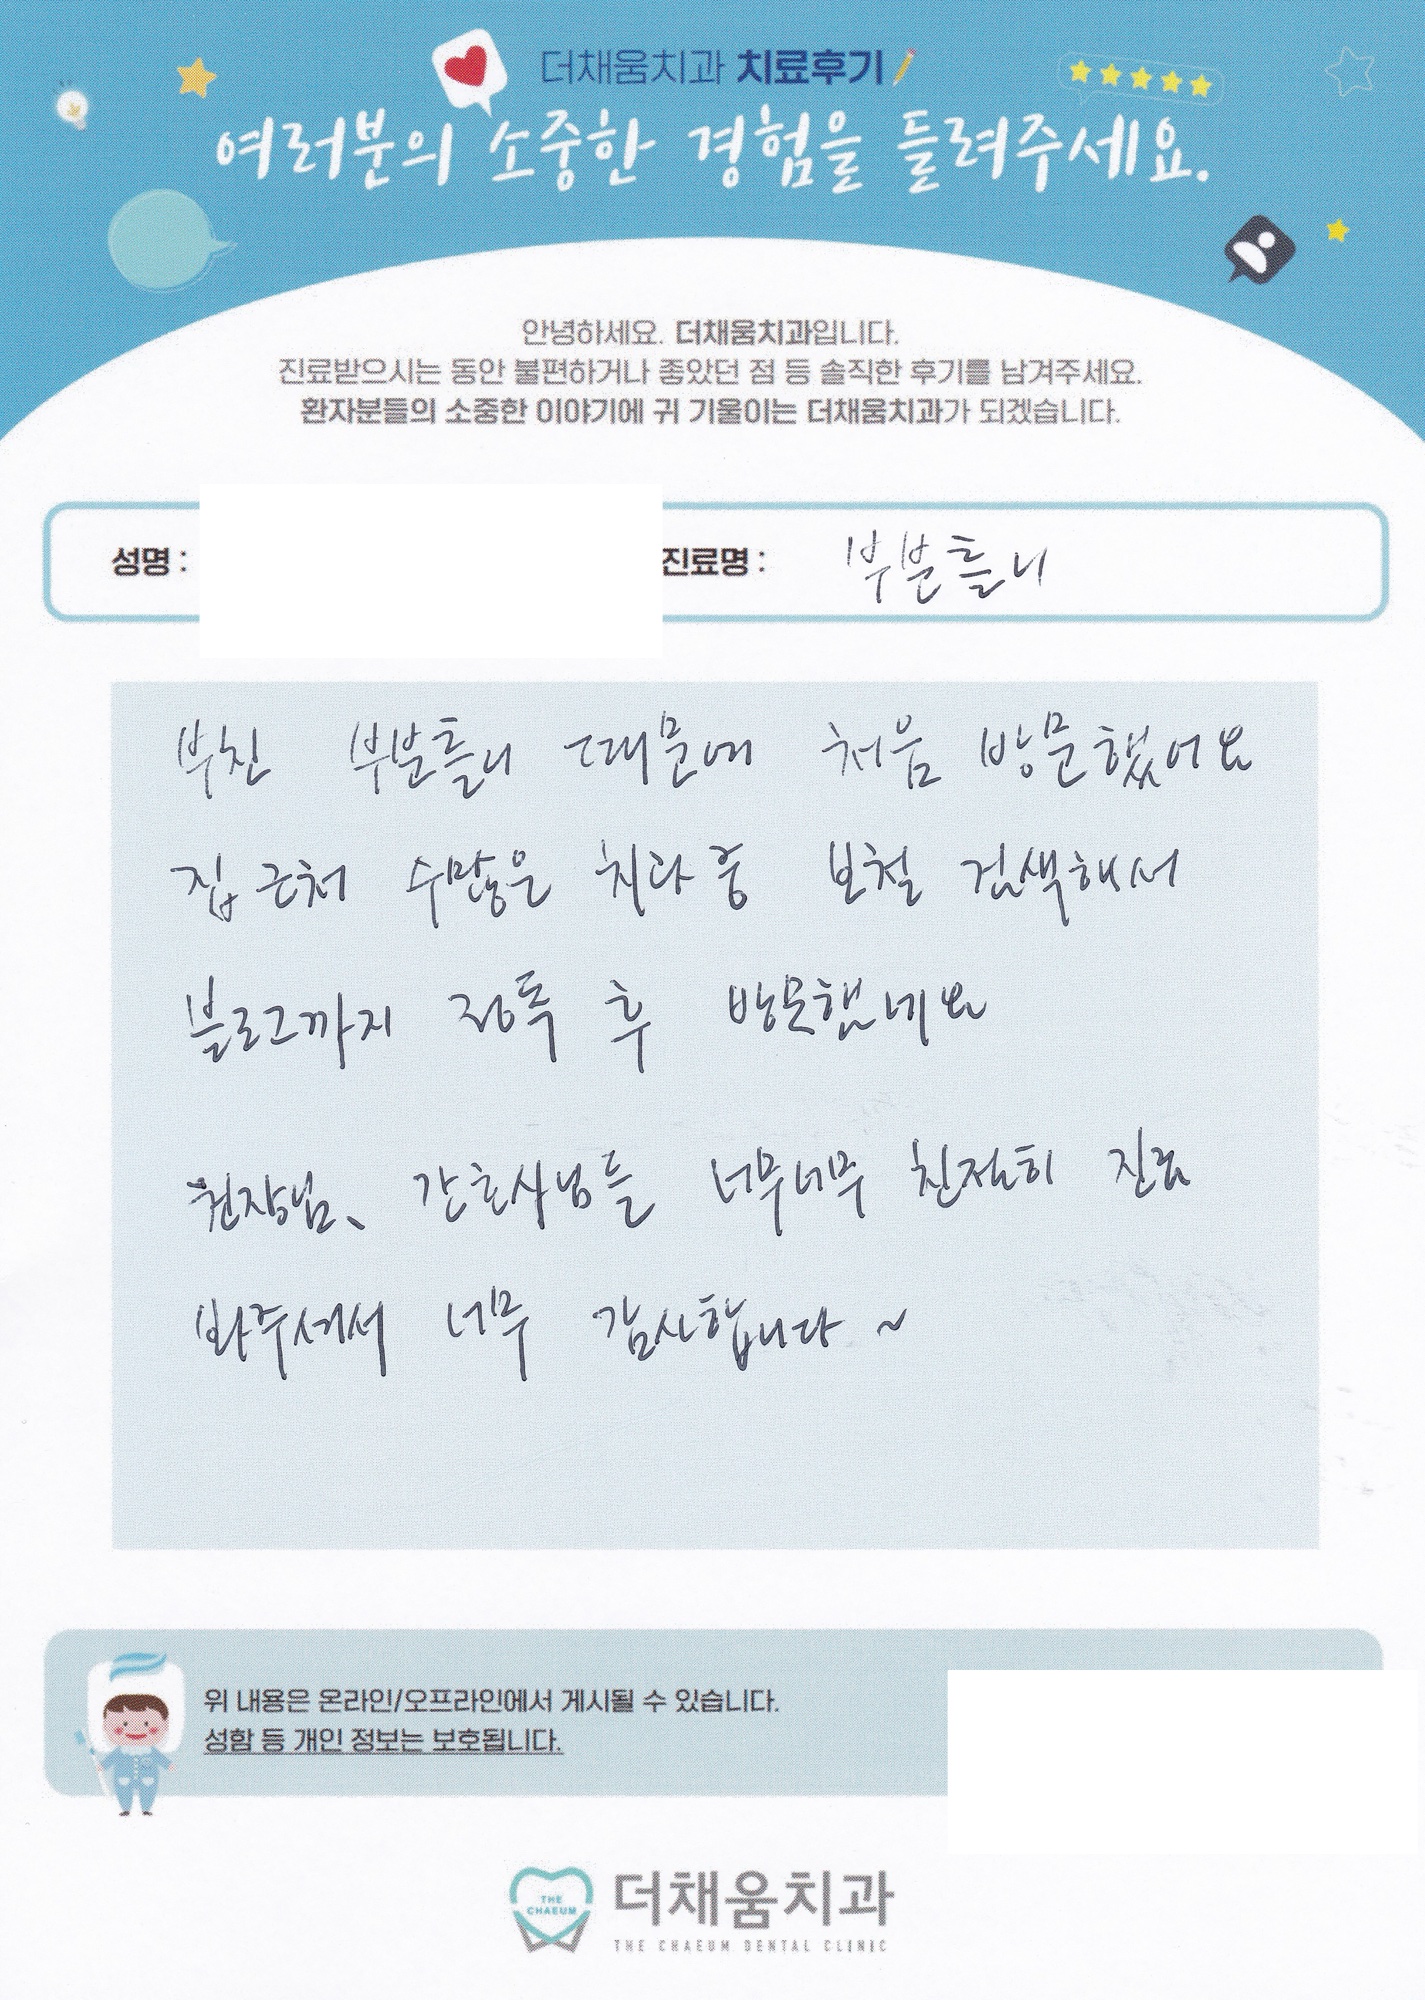 더채움치과 치료후기
여러분의 소중한 경험을 들려주세요.
안녕하세요. 더채움치과입니다.
진료받으시는 동안 불편하거나 좋았던 점 등 솔직한 후기를 남겨주세요.
환자분들의 소중한 이야기에 귀 기울이는 더채움치과가 되겠습니다.
성명 : 진료명 : 부분틀니
부친 부분틀니 때문에 처음 방문했어요
집 근처 수많은 치과 중 보철 검색해서
블로그까지 정독 후 방문했네요
원장님、 간호사님들 너무너무 친절히 진료
봐주셔서 너무 감사합니다 ~
위 내용은 온라인/오프라인에서 게시될 수 있습니다.
성함 등 개인 정보는 보호됩니다.
THE
CHAEUM
더채움치과
THE CHAEUM DENTAL CLINIC